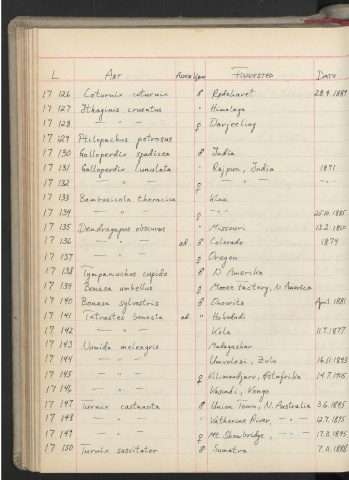 L Art Alder Kjønn Finnested Dato
17 126 Coturnix coturnix ♂ Rødehavet 28.9.1889
17 127 Ithaginis cruentus " Himalaya
17 128 — " — ♀ Darjeeling
17 129 Ptilopachus petrosus
17 130 Galloperdix spadicea ♂ India
17 131 Galloperdix lunulata " Rajpur, India 1871
17 132 — " — ♀ — " — — " —
17 133 Bambusicola thoracica Kina
17 134 — " — ♀ — " — 25.10.1885
17 135 Dendragapus obscurus " Missouri 13.2.1860
17 136 — " — ad ♂ Colorado 1874
17 137 — " — ♀ Oregon
17 138 Tympanuchus cupido ♂ N. Amerika
17 139 Bonasa umbellus ♀ Moose factory, N. America
17 140 Bonasa sylvestris ♂ April 1881
17 141 Tetrastes bonasia ad " Hokodadi
17 142 — " — Kola 11.7.1877
17 143 Numida meleagris Madagaskar
17 144 — " — Umvolosi, Zulu 16.11.1893
17 145 — " — ♀ Kilimandjaro, Østafrika 14.7.1905
17 146 — " — Kasindi, Kongo
17 147 Turnix castanota ♂ Union Town, N. Australia 3.6.1895
17 148 — " — " Katherine River, — " — 12.7.1895
17 149 — " — ♀ Mt. Showbridge, — " — 17.8.1895
17 150 Turnix suscitator ♂ Sumatra 7.11.1888